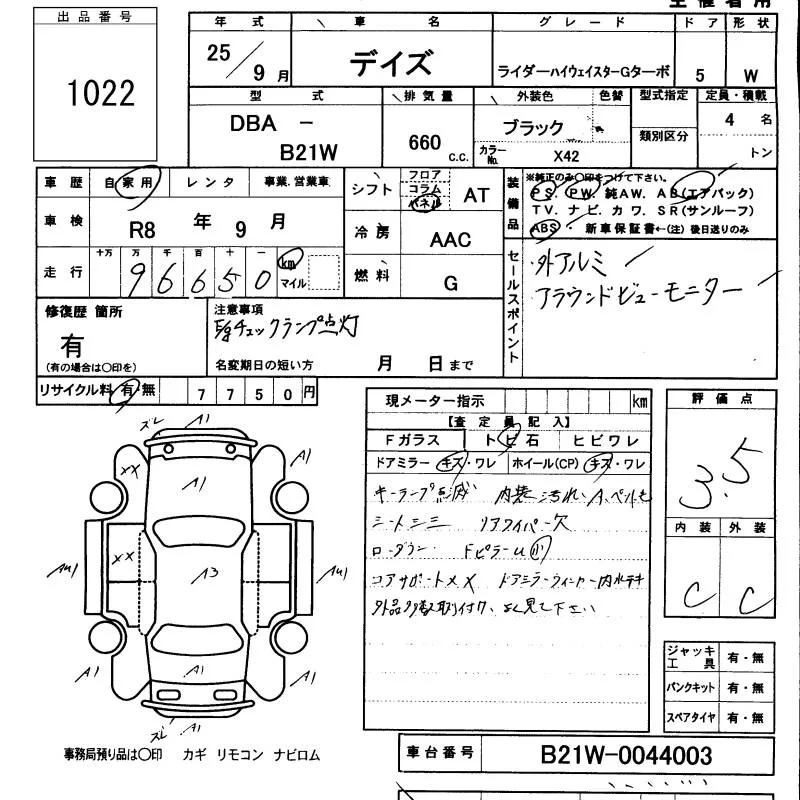 出品番号
1022
年式 車名 グレード ドア 形状
25/9月 デイズ ライダーハイウェイスターGターボ 5 W
型式 排気量 外装色 色替 型式指定 定員・積載
DBA - B21W 660 c.c. ブラック 類別区分 4名
カラーNo. X42 トン
車歴 自家用 レンタ 事業.営業車
シフト フロア コラム パネル AT
装備品 ※純正のみ〇印をつけて下さい。
PS. PW. 純AW. AB(エアバック)
TV. ナビ. カワ. SR(サンルーフ)
ABS ・ 新車保証書←(注) 後日送りのみ
車検 R8年9月
冷房 AAC
走行 十万 万 千 百 十 一
96650 km マイル
燃料 G
セールスポイント
外アルミ
アラウンドビューモニター
修復歴 箇所
有
(有の場合は〇印を)
注意事項
E/gチェックランプ点灯
名変期日の短い方 月 日まで
リサイクル料 有・無 7750円
現メーター指示 km
【査定員記入】
Fガラス トビ石 ヒビワレ
ドアミラー キズ・ワレ ホイール(CP) キズ・ワレ
キーランプ点滅 内装汚れ・
シートシミ リアワイパー欠
ローダウン FピラーU
コアサポートXX ドアミラーウィンカー内水
外品多数取付け、よく見て下さい
評価点
3.5
内装 外装
C C
ジャッキ工具 有・無
パンクキット 有・無
スペアタイヤ 有・無
ズレ A1
XX A1 A1
AU1 XX A3 AU1
A1 A1 A1
ズレ A1
事務局預り品は〇印 カギ リモコン ナビロム
車台番号 B21W-0044003